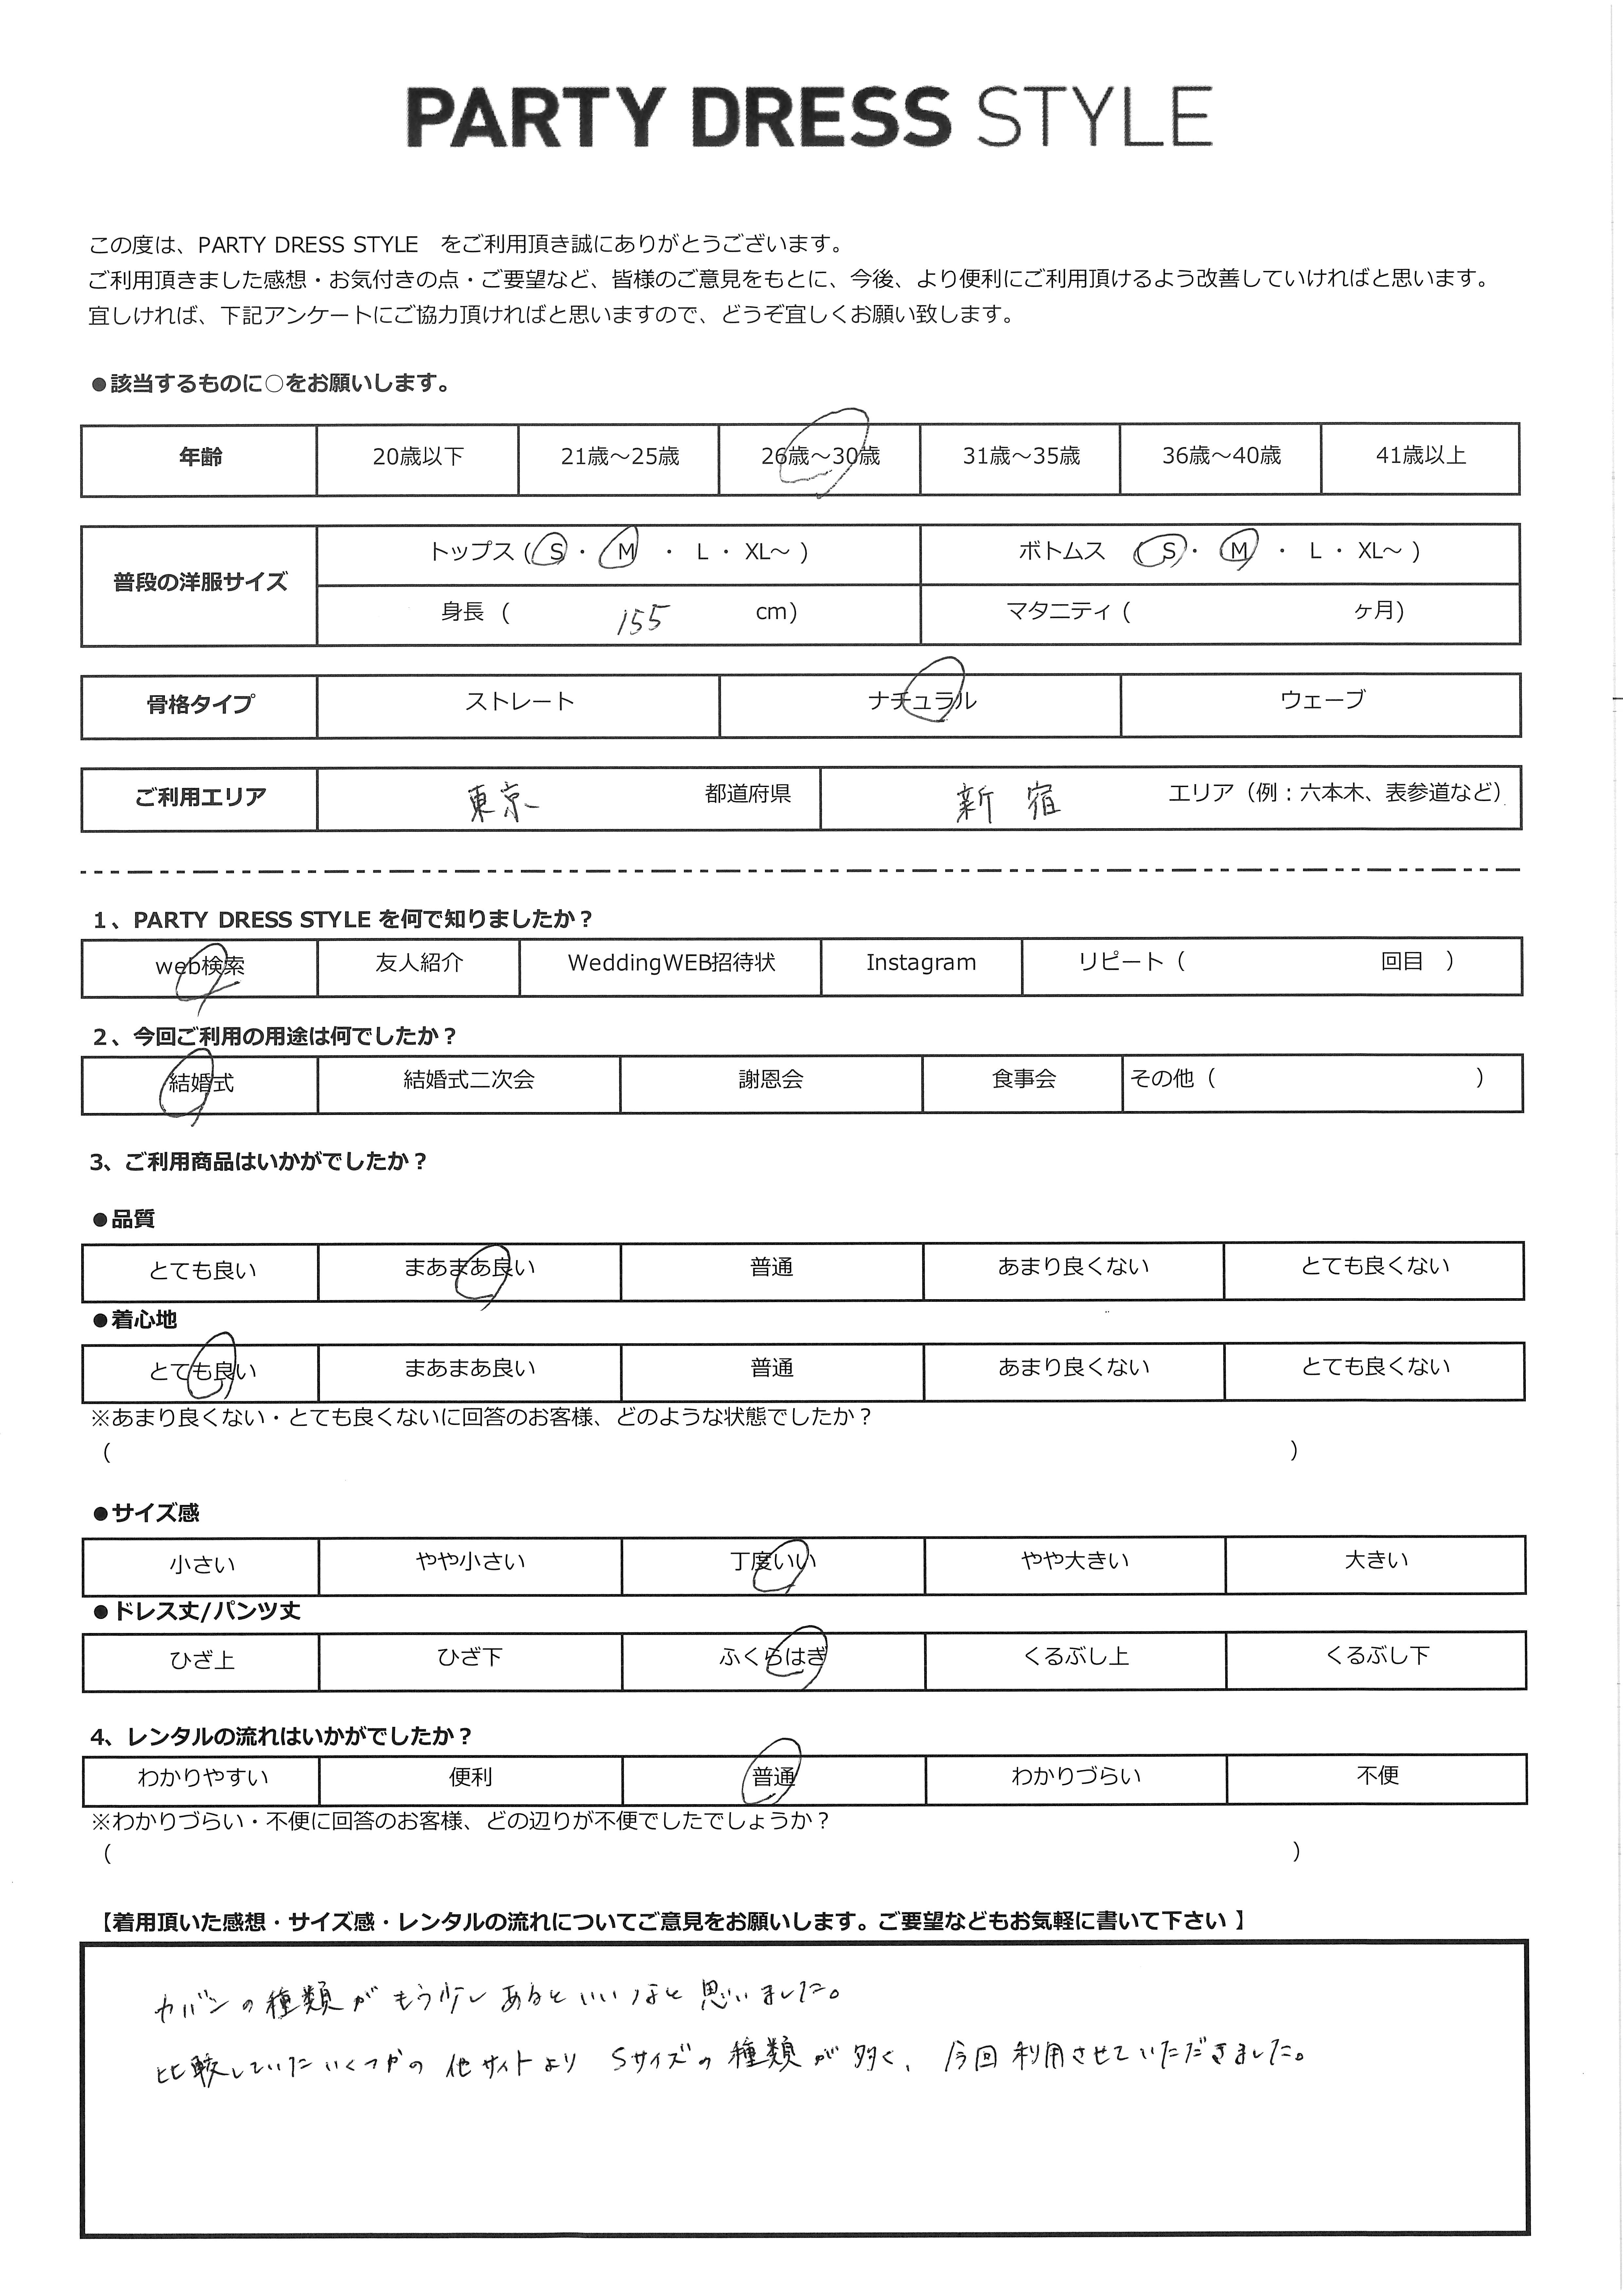 PARTY DRESS STYLE
この度は、PARTY DRESS STYLE　をご利用頂き誠にありがとうございます。
ご利用頂きました感想・お気付きの点・ご要望など、皆様のご意見をもとに、今後、より便利にご利用頂けるよう改善していければと思います。
宜しければ、下記アンケートにご協力頂ければと思いますので、どうぞ宜しくお願い致します。
●該当するものに○をお願いします。
年齢 20歳以下 21歳～25歳 26歳～30歳 31歳～35歳 36歳～40歳 41歳以上
普段の洋服サイズ
トップス（ S ・ M ・ L ・ XL～ ） ボトムス （ S ・ M ・ L ・ XL～ ）
身長（ 155 cm） マタニティ（ ヶ月）
骨格タイプ ストレート ナチュラル ウェーブ
ご利用エリア 東京 都道府県 新宿 エリア（例：六本木、表参道など）
1、PARTY DRESS STYLE を何で知りましたか？
web検索 友人紹介 WeddingWEB招待状 Instagram リピート（ 回目 ）
2、今回ご利用の用途は何でしたか？
結婚式 結婚式二次会 謝恩会 食事会 その他（ ）
3、ご利用商品はいかがでしたか？
●品質
とても良い まあまあ良い 普通 あまり良くない とても良くない
●着心地
とても良い まあまあ良い 普通 あまり良くない とても良くない
※あまり良くない・とても良くないに回答のお客様、どのような状態でしたか？
（ ）
●サイズ感
小さい やや小さい 丁度いい やや大きい 大きい
●ドレス丈/パンツ丈
ひざ上 ひざ下 ふくらはぎ くるぶし上 くるぶし下
4、レンタルの流れはいかがでしたか？
わかりやすい 便利 普通 わかりづらい 不便
※わかりづらい・不便に回答のお客様、どの辺りが不便でしたでしょうか？
（ ）
【着用頂いた感想・サイズ感・レンタルの流れについてご意見をお願いします。ご要望などもお気軽に書いて下さい 】
カバンの種類がもう少しあるといいなと思いました。
比較していたいくつかの他サイトより Sサイズの種類が多く、今回利用させていただきました。